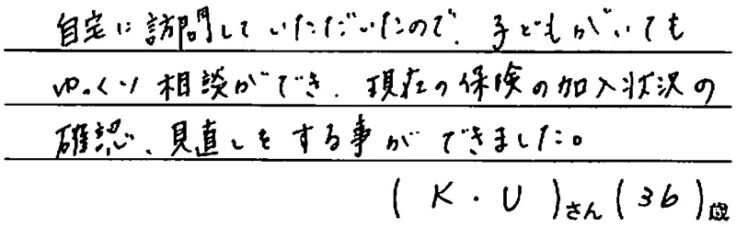 自宅に訪問していただいたので、子どもがいても
ゆっくり相談ができ、現在の保険の加入状況の
確認、見直しをする事ができました。
(K・U)さん(36)歳